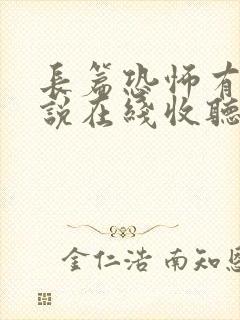 長篇恐怖有
說在綫收聽
金仁浩 南知恩